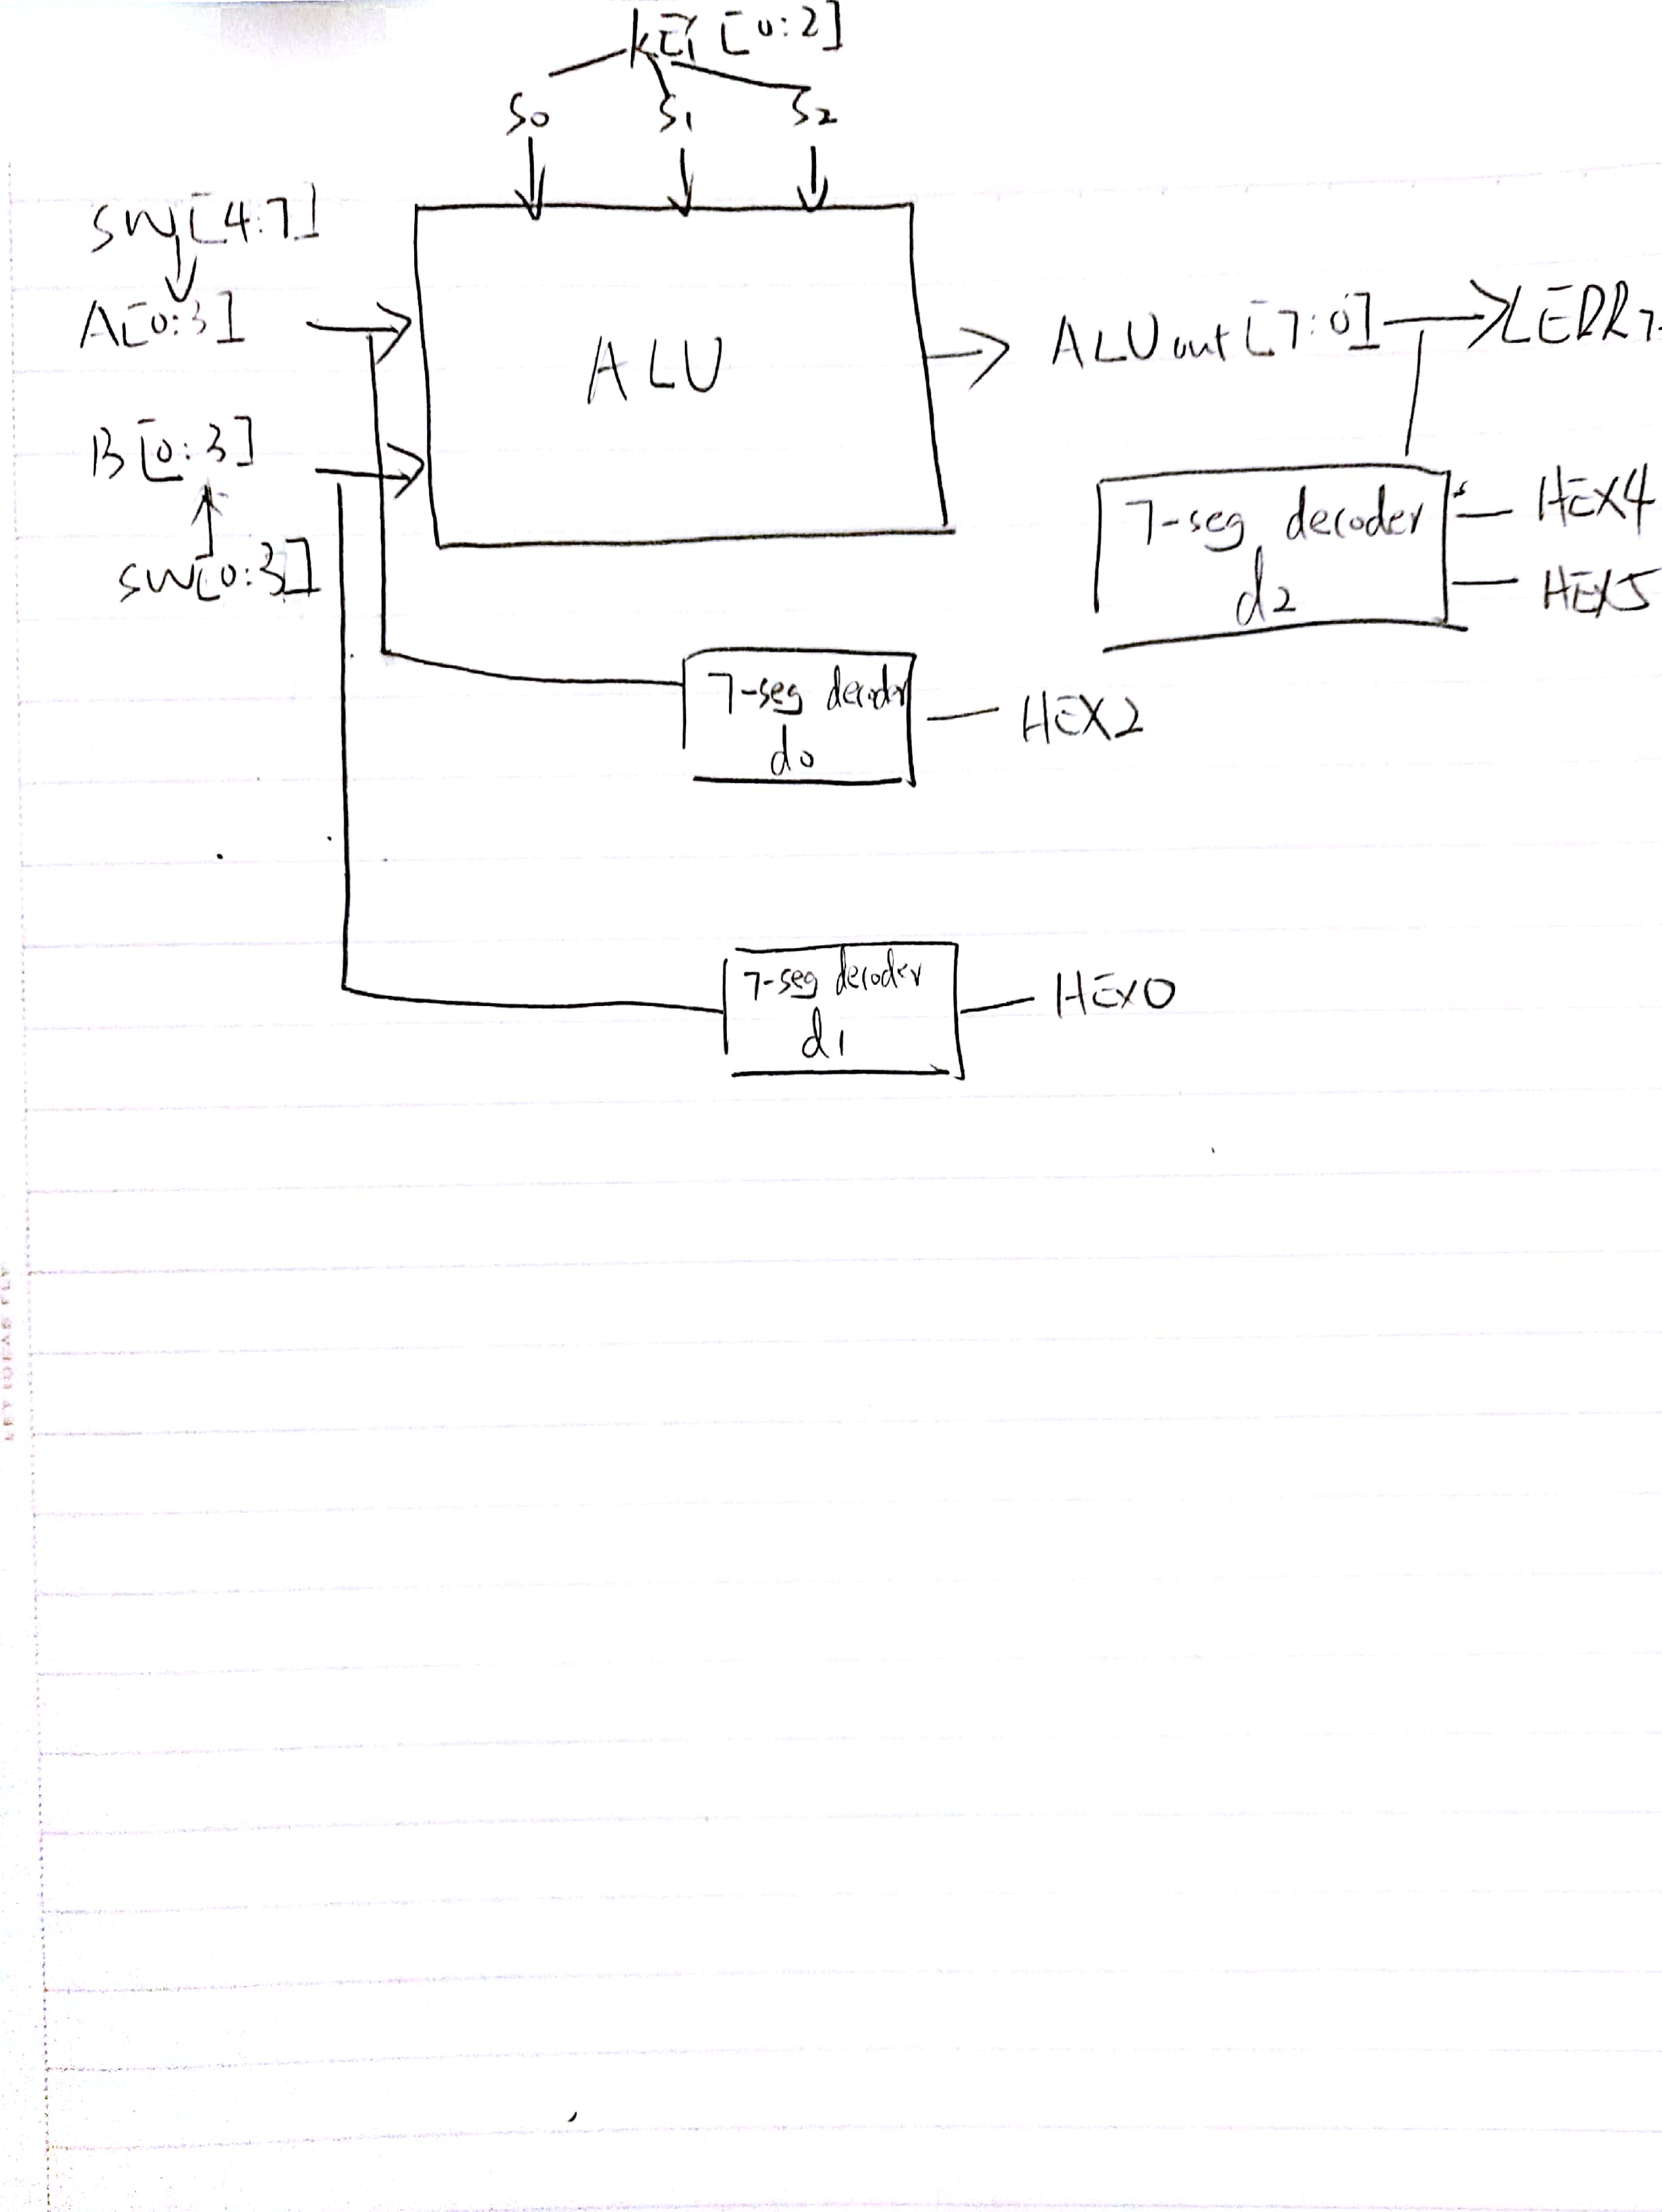 KEY[0:2]
S0 S1 S2
SW[4:7]
A[0:3]
ALU
ALUout[7:0]
LEDR7
B[0:3]
SW[0:3]
7-seg decoder
d2
HEX4
HEX5
7-seg decoder
d0
HEX2
7-seg decoder
d1
HEX0